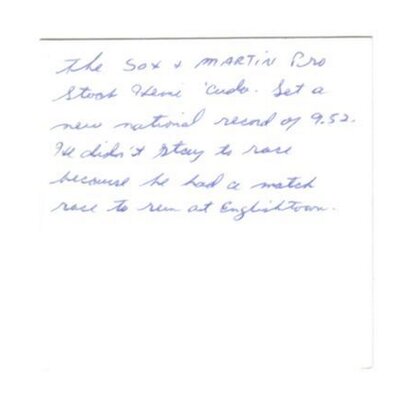 The SOX & MARTIN Pro
Stock Hemi 'Cuda. Set a
new national record of 9.52.
He didn't stay to race
because he had a match
race to run at Englishtown.